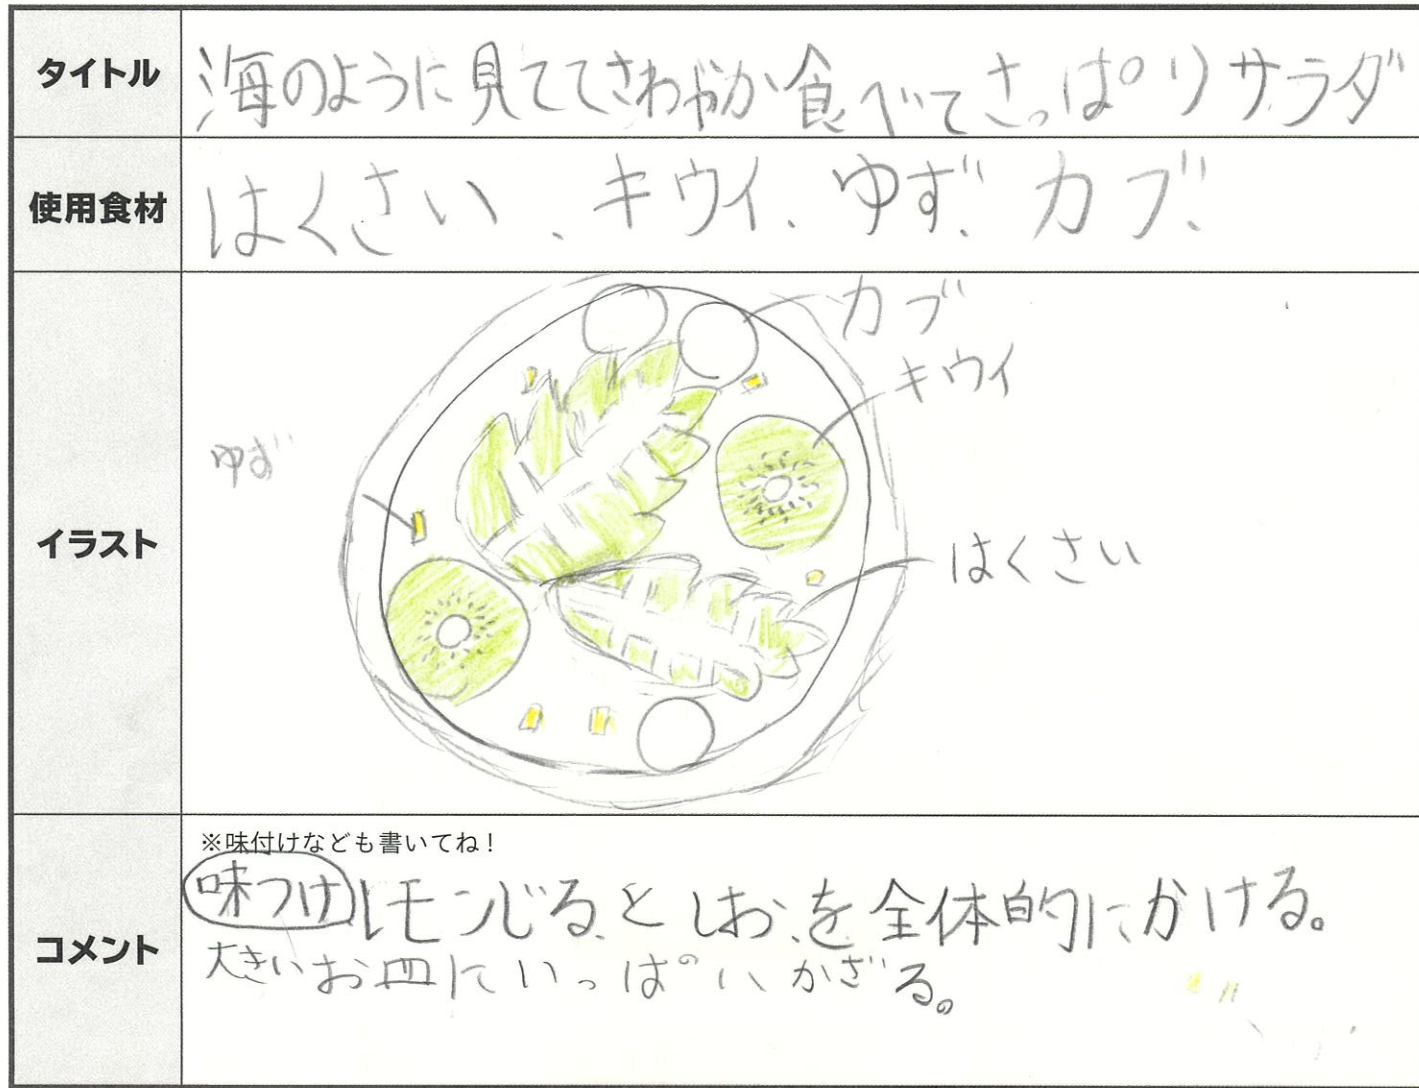 タイトル
海のように見ててさわやか食べてさっぱりサラダ
使用食材
はくさい、キウイ、ゆず、カブ、
イラスト
カブ
キウイ
ゆず
はくさい
コメント
※味付けなども書いてね！
味つけ レモンじるとしおを全体的にかける。
大きいお皿にいっぱいかざる。